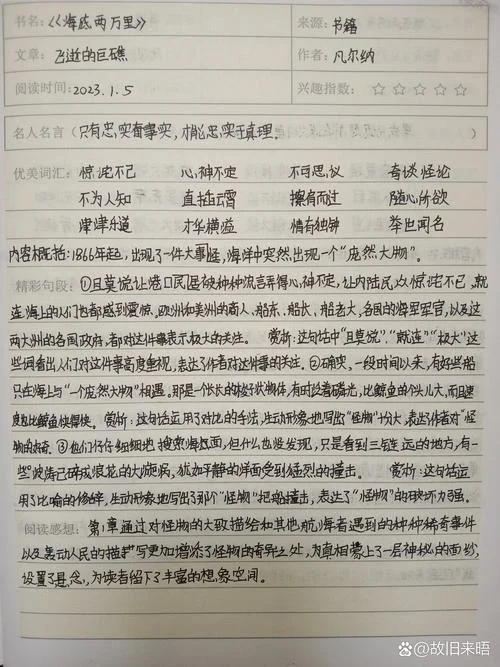 书名:《海底两万里》 来源: 书籍
文章: 飞逝的巨礁 作者: 凡尔纳
阅读时间: 2023.1.5 兴趣指数: ☆☆☆☆☆
名人名言(只有忠实看事实,才能忠实于真理. )
优美词汇: 惊诧不已 心神不定 不可思议 奇谈怪论
不为人知 直插云霄 擦肩而过 随心所欲
津津乐道 才华横溢 情有独钟 举世闻名
内容概括:1866年起,出现了一件大事怪,海洋中突然出现一个“庞然大物”。
精彩句段: ①且莫说让港口民居被种种流言弄得心神不定,让内陆民众惊诧不已,就
连海上的人们也都感到震惊,欧洲和美洲的商人、船东、船长、船老大,各国的海军军官,以及这
两大洲的各国政府,都对这件事表示极大的关注。 赏析:这句话中“且莫说”、“就连”“极大”这
些词看出人们对这件事高度重视,表达了作者对这件事的关注。②确实,一段时间以来,有好些船
只在海上与“一个庞然大物”相遇。那是一个长长的梭状物体,有时发着磷光,比鲸鱼的个头儿大,而且速
度也比鲸鱼快得快。 赏析:这句话运用了对比的手法,生动形象地写出“怪物”十分大,表达作者对“怪
物的好奇。③他们仔仔细细地搜索海底面,但什么也没发现,只是看到三链远的地方,有一
些波涛已碎成浪花的大漩涡,犹如平静的洋面受到猛烈的撞击。 赏析:这句话运
用了比喻的修辞,生动形象地写出了那个“怪物”把船撞击,表达了“怪物”的破坏力强。
阅读感想: 第1章通过对怪物的大致描绘和其他航海者遇到的种种稀奇事件
以及轰动人民的描写更加增添了怪物的奇异之处,为真相蒙上了一层神秘的面纱,
设置了悬念,为读者留下了丰富的想象空间。
@故旧来晤